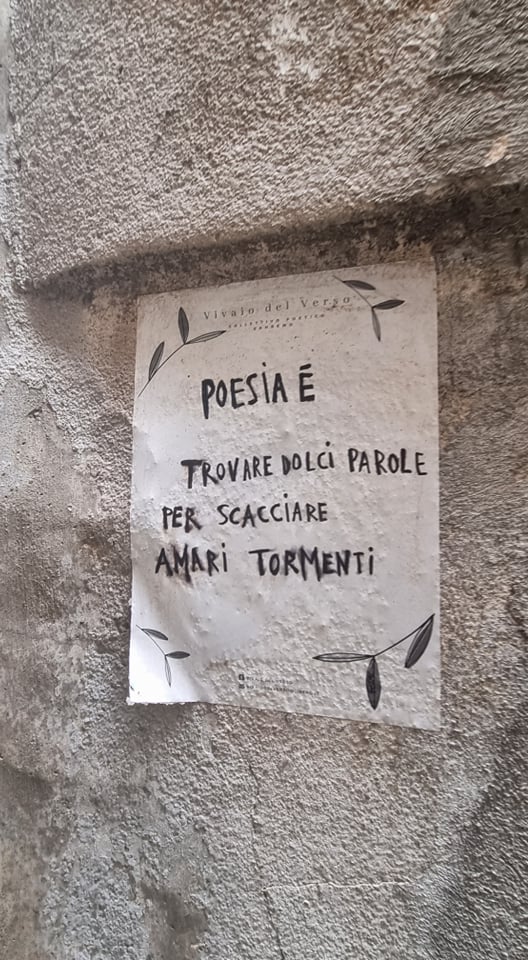 Vivaio del Verso
COLLETTIVO POETICO
SANREMO
POESIA É
TROVARE DOLCI PAROLE
PER SCACCIARE
AMARI TORMENTI